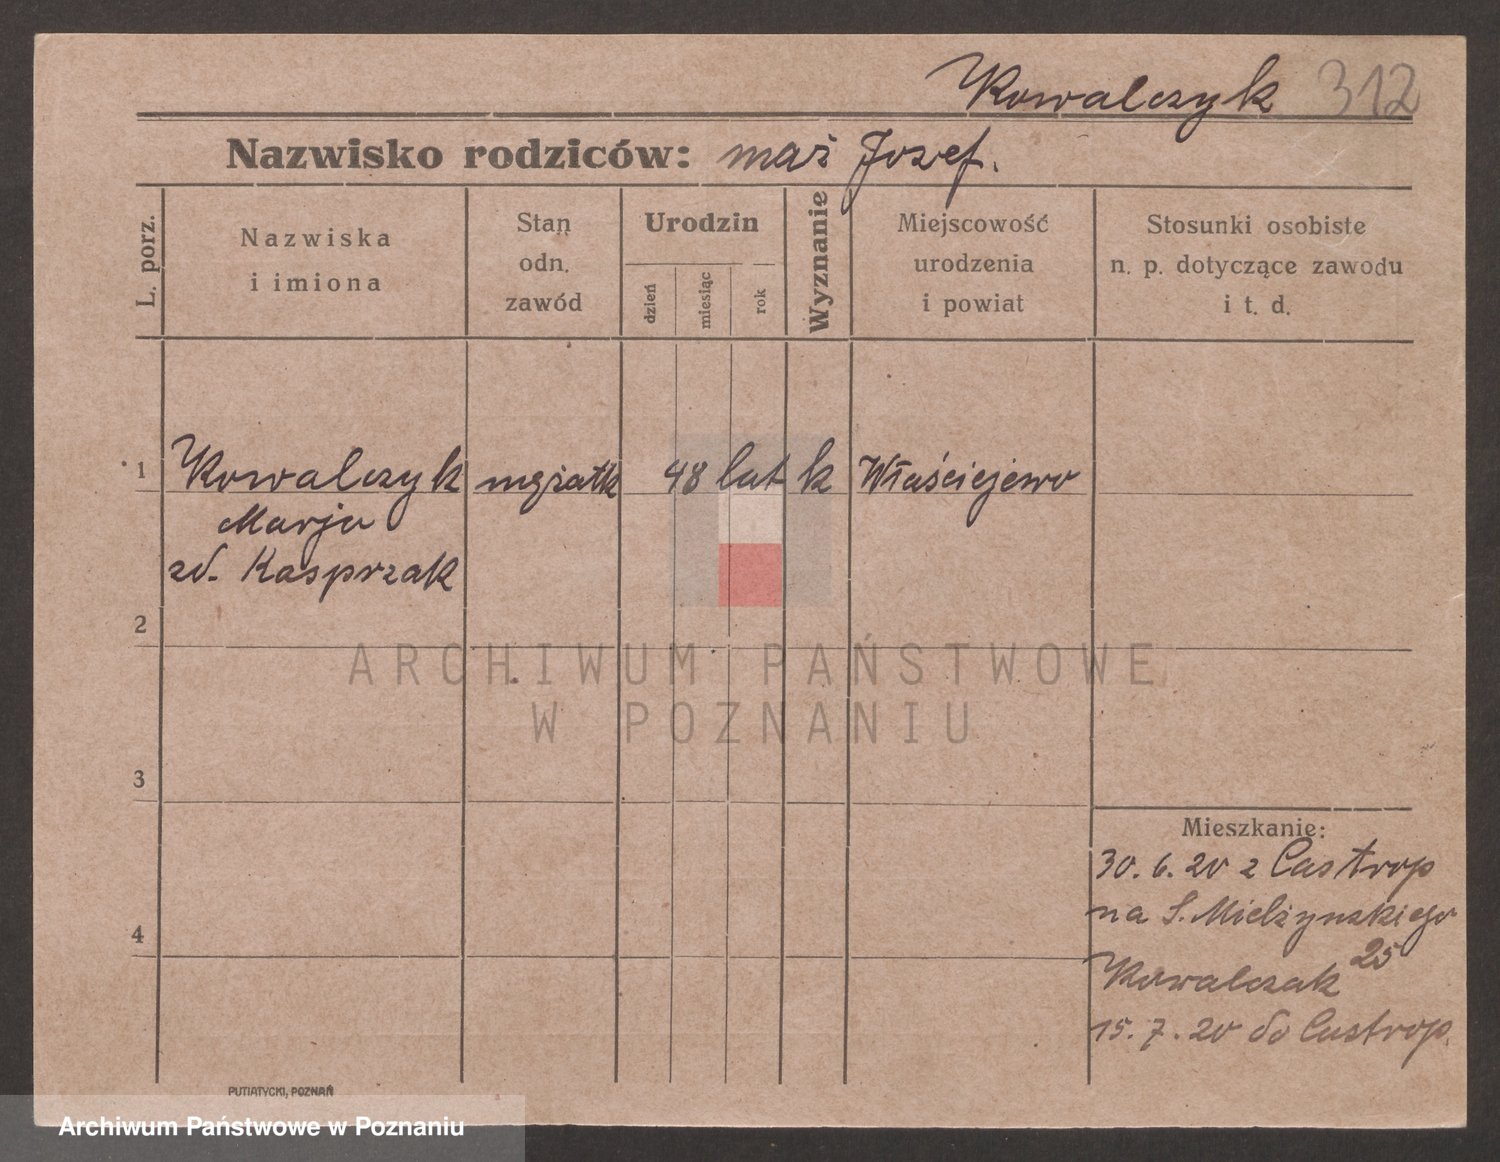 Kowalczyk 312
Nazwisko rodziców: mąż Jozef.
L. porz.
Nazwiska
i imiona
Stan
odn.
zawód
Urodzin
dzień
miesiąc
rok
Wyznanie
Miejscowość
urodzenia
i powiat
Stosunki osobiste
n. p. dotyczące zawodu
i t. d.
1 Kowalczyk mężatk 48 lat k Właściejewo
Marja
zd. Kasprzak
2
ARCHIWUM PAŃSTWOWE
W POZNANIU
3
Mieszkanie:
30. 6. 20 z Castrop
na S. Mielżynskiego
25
4
Kowalczak
15. 7. 20 do Castrop.
PUTIATYCKI, POZNAŃ
Archiwum Państwowe w Poznaniu